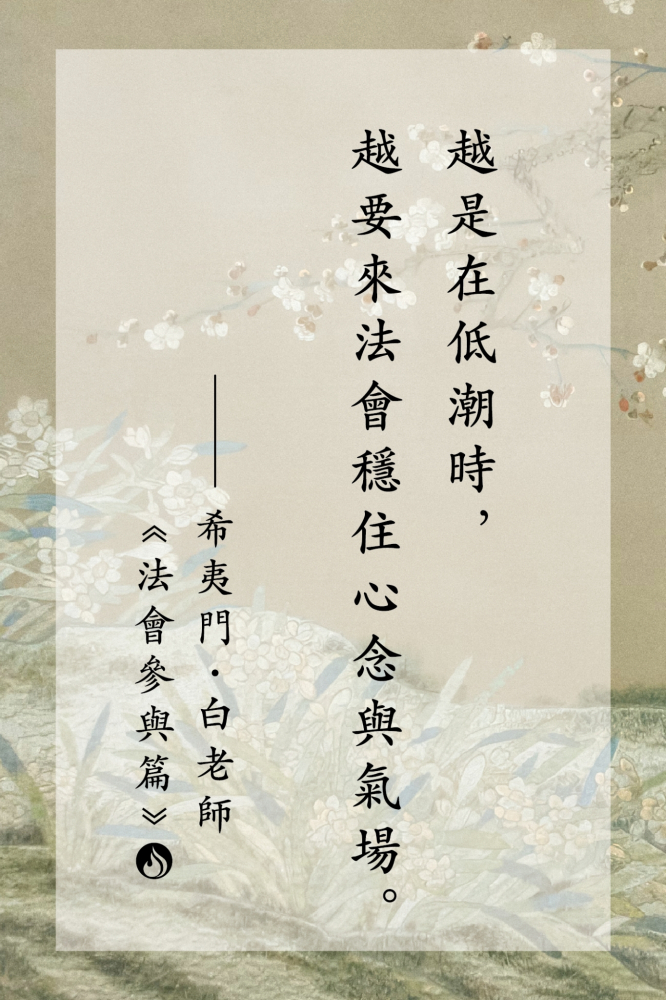 越是在低潮時，
越要來法會穩住心念與氣場。
——希夷門・白老師
《法會參與篇》